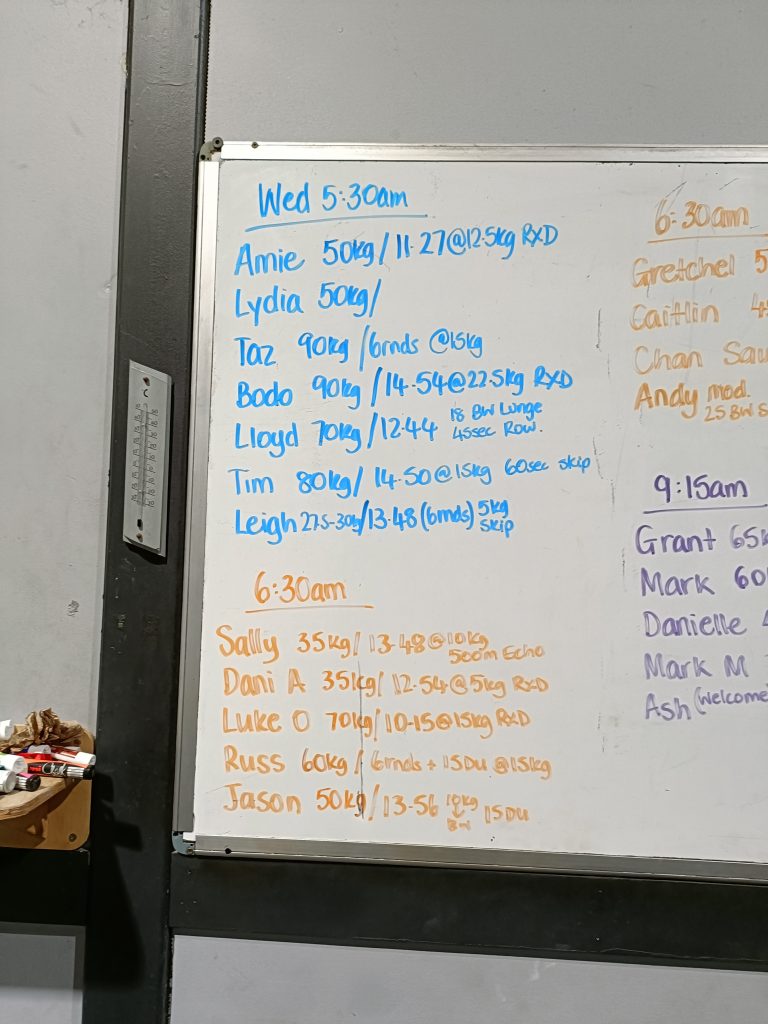 Wed 5:30am
Amie 50kg/11.27@12.5kg RXD
Lydia 50kg/
Taz 90kg/6rnds @15kg
Bodo 90kg/14.54@22.5kg RXD
Lloyd 70kg/12.44 18 BW Lunge
45sec Row.
Tim 80kg/14.50@15kg 60sec skip
Leigh 27.5-30kg/13.48 (6rnds) 5kg
skip
6:30am
Sally 35kg/13.48@10kg
500m Echo
Dani A 35kg/12.54@5kg RXD
Luke O 70kg/10-15@15kg RXD
Russ 60kg/6rnds + 15DU @15kg
Jason 50kg/13-56 10kg 15DU
6:30am
Gretchel 5
Caitlin 4
Chan Sau
Andy mod.
25 BW S
9:15am
Grant 65k
Mark 60
Danielle
Mark M
Ash (Welcome
C